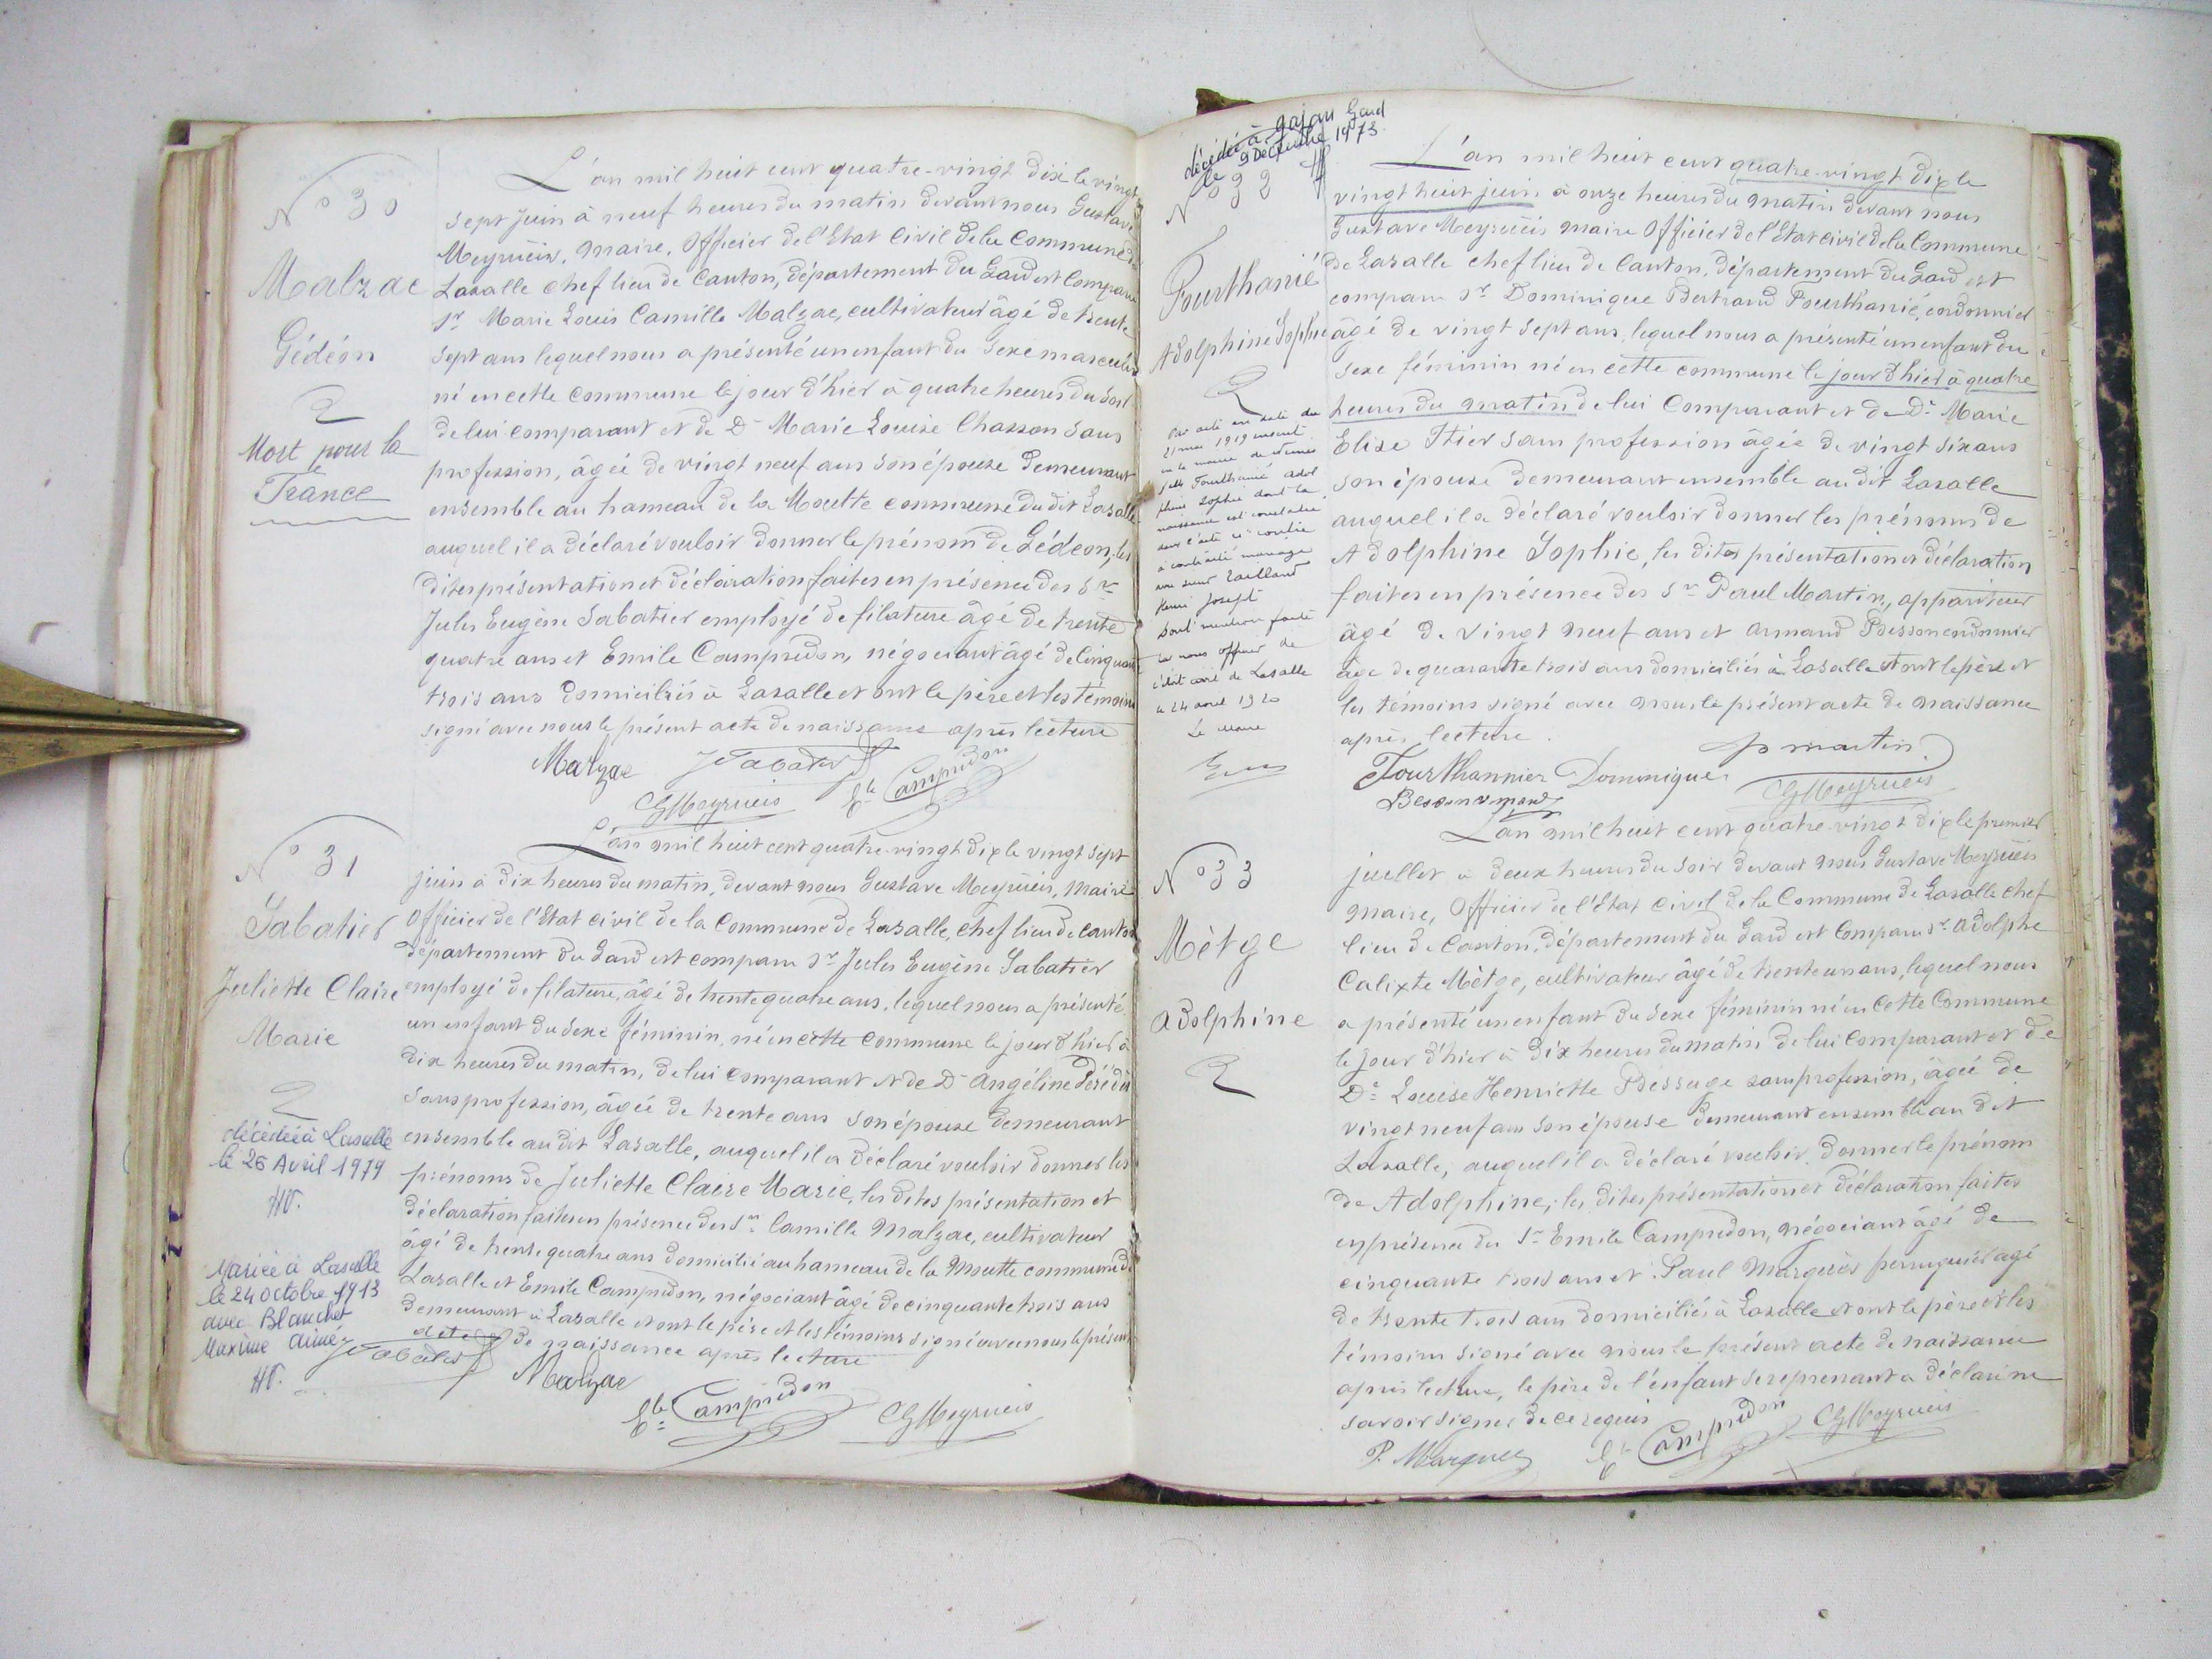 N° 30
Malzac
Gédéon
Mort pour la
France
L'an mil huit cent quatre-vingt dix le vingt
sept juin à neuf heures du matin devant nous Gustave
Meyrueis, maire, Officier de l'Etat Civil de la Commune de
Lasalle chef lieu de Canton, département du Gard est comparu
Sr Marie Louis Camille Malzac, cultivateur âgé de trente
sept ans lequel nous a présenté un enfant du sexe masculin
né en cette commune le jour d'hier à quatre heures du soir
de lui comparant et de De Marie Louise Chasson sans
profession, âgée de vingt neuf ans son épouse demeurant
ensemble au hameau de la Moutte commune du dit Lasalle
auquel il a déclaré vouloir donner le prénom de Gédéon, les
dites présentation et déclaration faites en présence des Srs
Jules Eugène Sabatier employé de filature âgé de trente
quatre ans et Emile Campredon, négociant âgé de cinquante
trois ans domiciliés à Lasalle et ont le père et les témoins
signé avec nous le présent acte de naissance après lecture
Malzac JSabatier
CGMeyrueis Ele Campredon
N° 31
Sabatier
Juliette Claire
Marie
décédée à Lasalle
le 26 Avril 1979
Mariée à Lasalle
le 24 Octobre 1913
avec Blanchet
Maxime Aimé
L'an mil huit cent quatre-vingt dix le vingt sept
juin à dix heures du matin, devant nous Gustave Meyrueis, Maire
Officier de l'Etat civil de la Commune de Lasalle, chef lieu de canton
département du Gard est comparu Sr Jules Eugène Sabatier
employé de filature, âgé de trente quatre ans, lequel nous a présenté
un enfant du sexe féminin, né en cette commune le jour d'hier à
dix heures du matin, de lui comparant et de De Angéline
sans profession, âgée de trente ans son épouse demeurant
ensemble au dit Lasalle, auquel il a déclaré vouloir donner les
prénoms de Juliette Claire Marie, les dites présentation et
déclaration faites en présence des Srs Camille Malzac, cultivateur
âgé de trente quatre ans domicilié au hameau de la Moutte commune de
Lasalle et Emile Campredon, négociant âgé de cinquante trois ans
demeurant à Lasalle et ont le père et les témoins signé avec nous le présent
acte de naissance après lecture
JSabatier Malzac
Ele Campredon CGMeyrueis
décédée à Gajan Gard
le 9 Décembre 1973
N° 32
Fourthanié
Adolphine Sophie
Par acte en date du
21 mai 1919 inscrit
en la mairie de Nimes
Fourthanié Adol
phine Sophie dont la
naissance est constatée
dans l'acte ci contre
a contracté mariage
avec sieur Vaillant
Henri Joseph
Dont mention faite
par nous officier de
l'état civil de Lasalle
le 24 avril 1920
Le Maire
L'an mil huit cent quatre-vingt dix le
vingt huit juin à onze heures du matin devant nous
Gustave Meyrueis maire Officier de l'Etat civil de la Commune
de Lasalle chef lieu de Canton, département du Gard est
comparu Sr Dominique Bertrand Fourthanié, cordonnier
âgé de vingt sept ans, lequel nous a présenté un enfant du
sexe féminin né en cette commune le jour d'hier à quatre
heures du matin de lui Comparant et de De Marie
Elise Itier sans profession âgée de vingt six ans
son épouse demeurant ensemble au dit Lasalle
auquel il a déclaré vouloir donner les prénoms de
Adolphine Sophie, les dites présentation et déclaration
faites en présence des Srs Paul Martin, appariteur
âgé de vingt neuf ans et Armand Besson cordonnier
âgé de quarante trois ans domiciliés à Lasalle et ont le père et
les témoins signé avec nous le présent acte de naissance
après lecture.
p martin
Fourthannier Dominique
Besson armand CGMeyrueis
N° 33
Mètge
Adolphine
L'an mil huit cent quatre-vingt dix le premier
juillet à deux heures du soir devant nous Gustave Meyrueis
maire, Officier de l'Etat civil de la Commune de Lasalle chef
lieu de Canton, département du Gard est Comparu Sr Adolphe
Calixte Mètge, cultivateur âgé de trente un ans, lequel nous
a présenté un enfant du sexe féminin né en cette Commune
le jour d'hier à dix heures du matin de lui Comparant et de
De Louise Henriette Bessuge sans profession, âgée de
vingt neuf ans son épouse demeurant ensemble au dit
Lasalle, auquel il a déclaré vouloir donner le prénom
de Adolphine, les dites présentation et déclaration faites
en présence des Srs Emile Campredon, négociant âgé de
cinquante trois ans et Paul Marquès perruquier âgé
de trente trois ans domiciliés à Lasalle et ont le père et les
témoins signé avec nous le présent acte de naissance
après lecture, le père de l'enfant se reprenant a déclaré ne
savoir signer de ce requis
P. Marques Ele Campredon CGMeyrueis